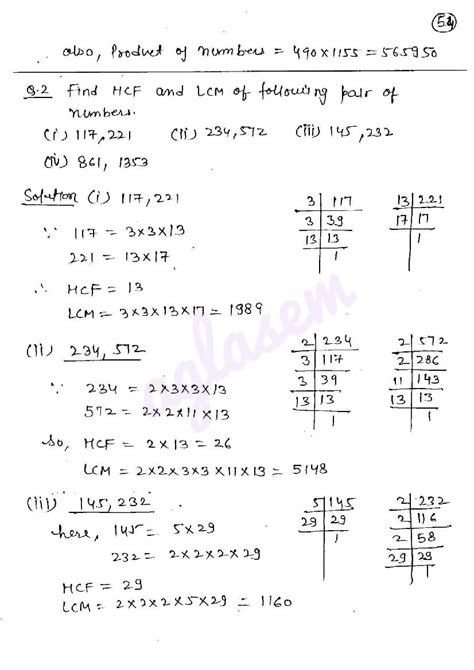 54
also, Product of numbers = 490×1155 = 565950
Q.2 Find HCF and LCM of following pair of
numbers.
(i) 117,221 (ii) 234,572 (iii) 145,232
(iv) 861, 1353
Solution (i) 117,221
∵ 117 = 3×3×13
221 = 13×17
∴ HCF = 13
LCM = 3×3×13×17 = 1989
3 | 117
3 | 39
13 | 13
1
13 | 221
17 | 17
1
(ii) 234,572
∵ 234 = 2×3×3×13
572 = 2×2×11×13
So, HCF = 2×13 = 26
LCM = 2×2×3×3×11×13 = 5148
2 | 234
3 | 117
3 | 39
13 | 13
1
2 | 572
2 | 286
11 | 143
13 | 13
1
(iii) 145,232
here, 145 = 5×29
232 = 2×2×2×29
HCF = 29
LCM = 2×2×2×5×29 = 1160
5 | 145
29 | 29
1
2 | 232
2 | 116
2 | 58
29 | 29
1
aglasem